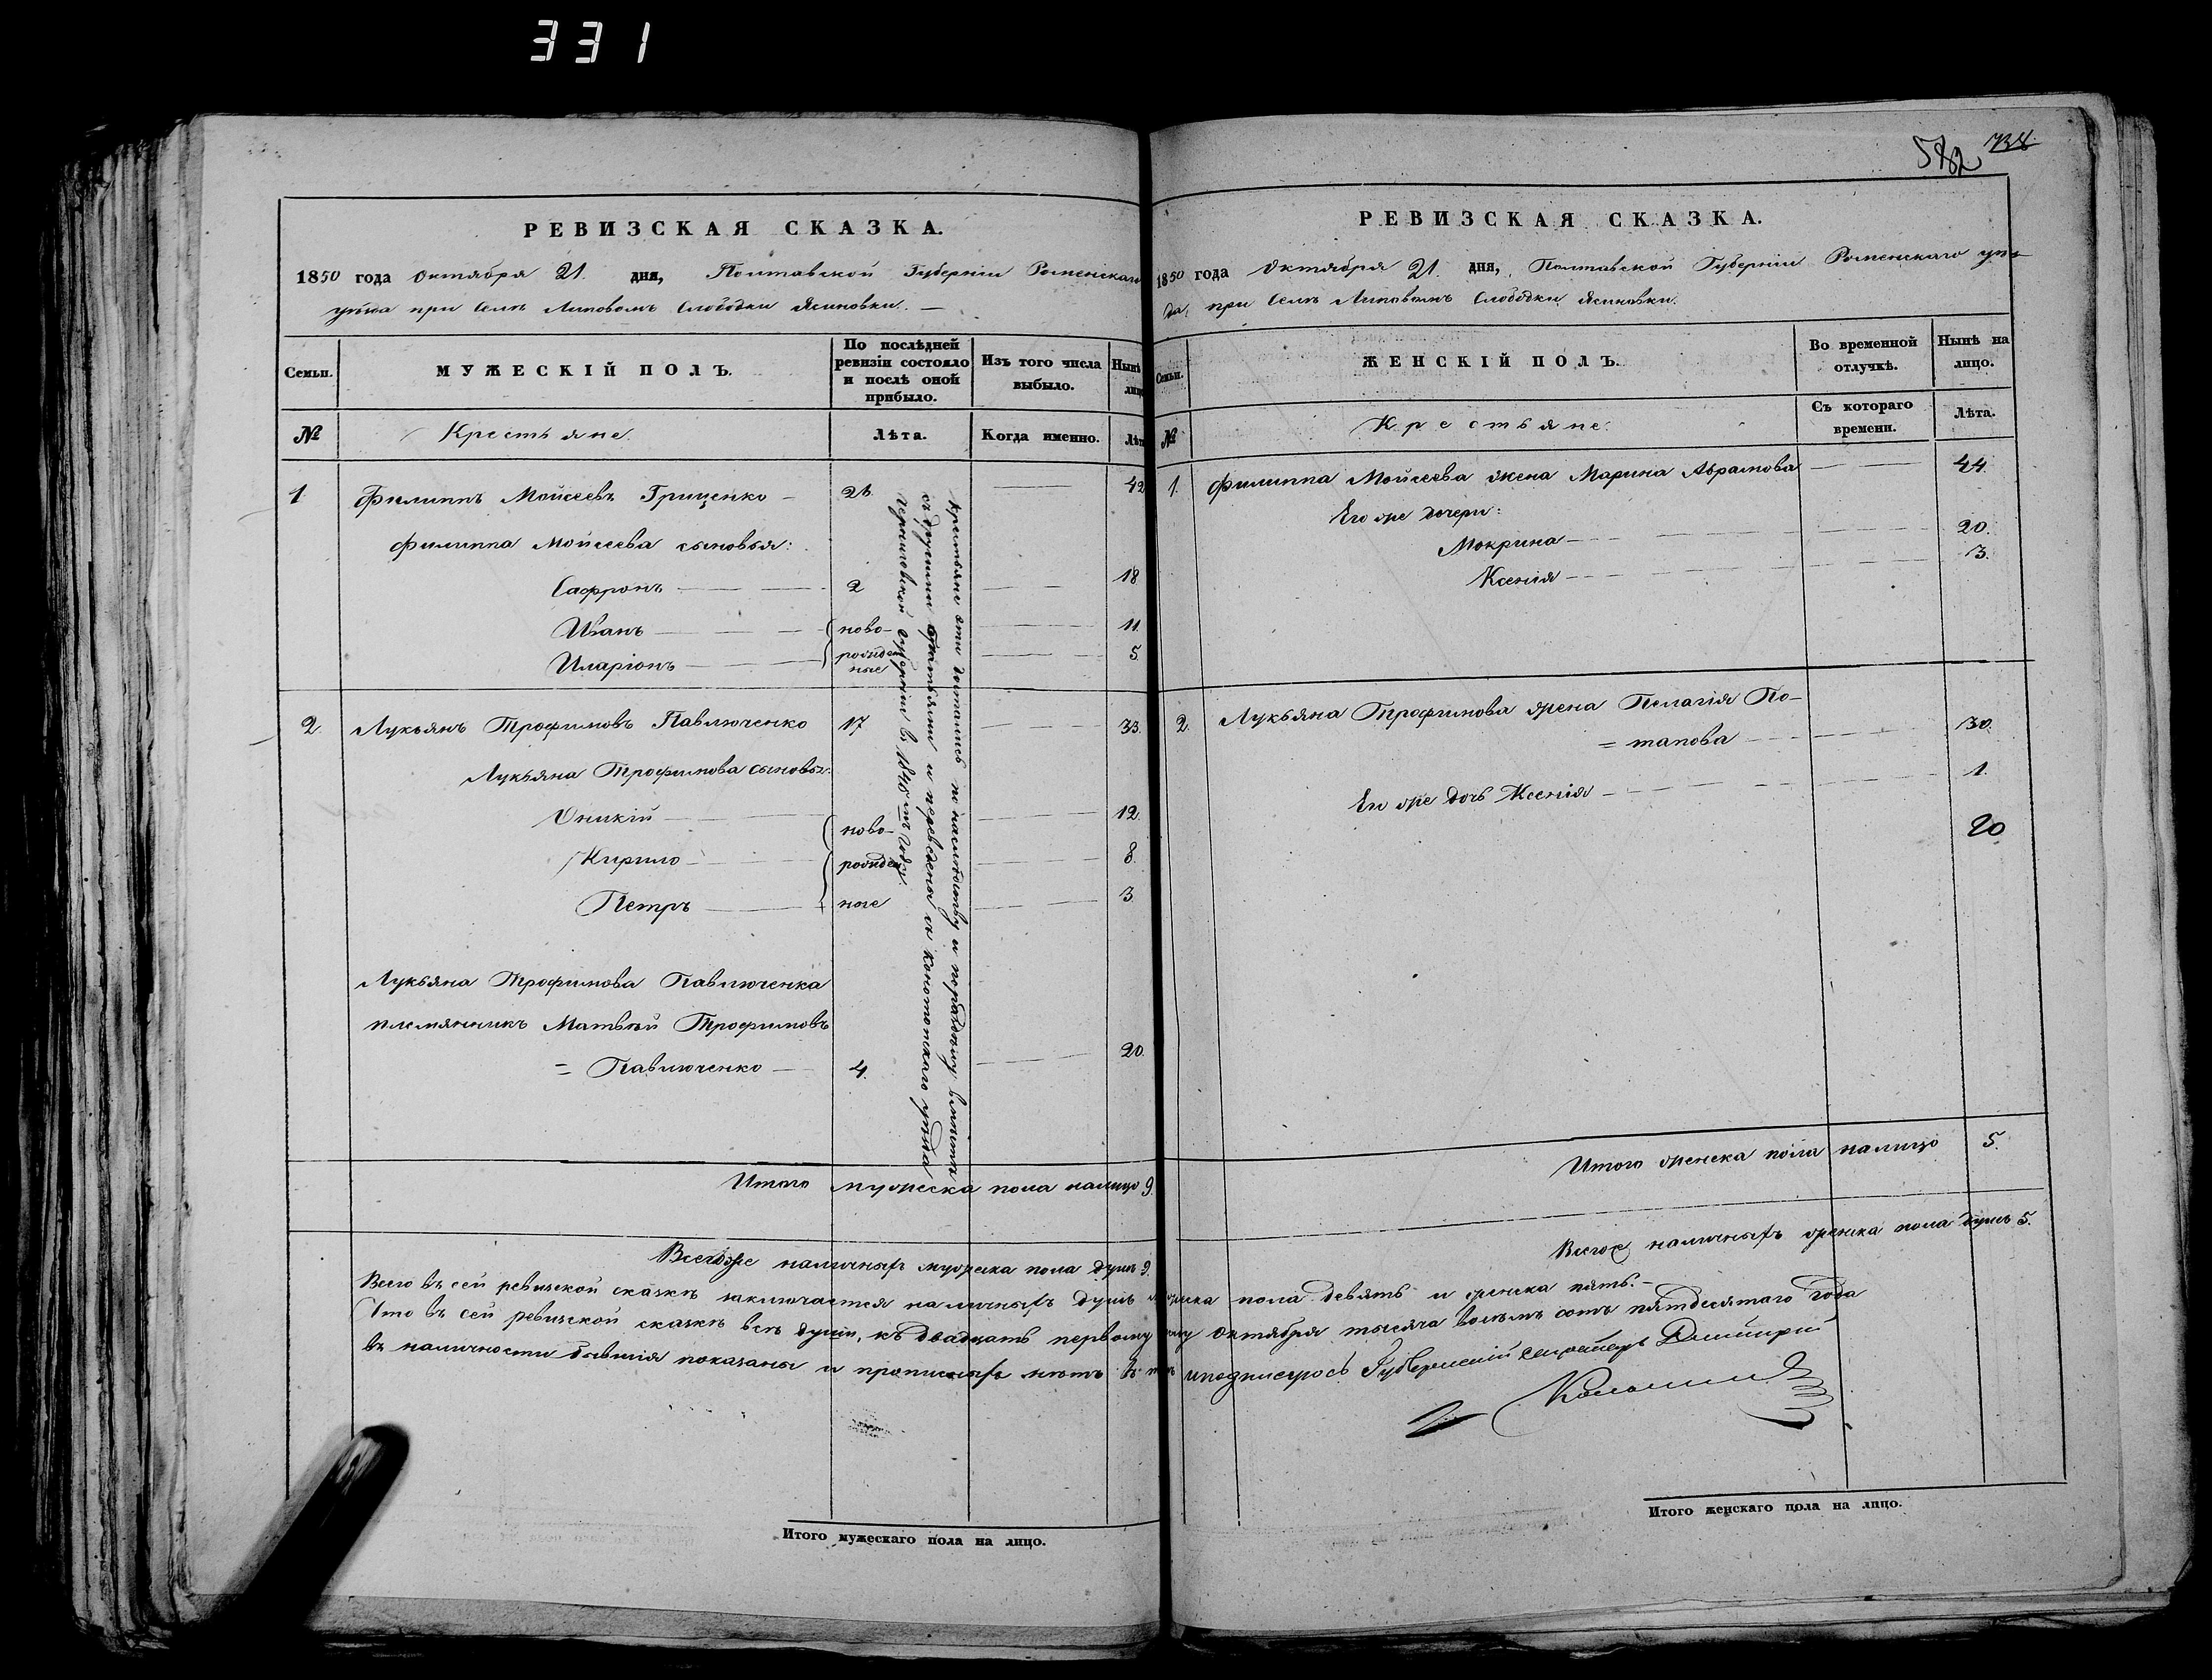 331
582 738
РЕВИЗСКАЯ СКАЗКА.
1850 года Октября 21. дня, Полтавской Губерніи Роменскаго
уѣзда при Селѣ Липовомъ Слободки Ясиновки. —
Семьи.
МУЖЕСКІЙ ПОЛЪ.
По послѣдней
ревизіи состояло
и послѣ оной
прибыло.
Изъ того числа
выбыло.
Нынѣ
лицо
№ Крестьяне. Лѣта. Когда именно. Лѣта
1. Филиппъ Мойсеевъ Гриценко — 26 — 42
Филиппа Мойсеева сыновья:
Сафронъ — 2 — 18
Иванъ — ново- — 11.
Иларіонъ — рожден — 5.
ные
2. Лукьянъ Трофимовъ Павлюченко 17 — 33.
Лукьяна Трофимова сыновья:
Оникій — ново- — 12.
Кирило — рожден — 8.
Петръ — ные — 3.
Лукьяна Трофимова Павлюченка
племянникъ Матвѣй Трофимовъ
= Павлюченко — 4. — 20.
Крестьяне эти достались по наслѣдству и по раздѣлу вмѣстѣ
съ другими братьями и переведены съ Конотопскаго уѣзда
Черниговской губерніи въ 1848мъ году.
Итого мужеска пола налицо 9.
Всего же наличныхъ мужеска пола душъ 9.
РЕВИЗСКАЯ СКАЗКА.
1850 года Октября 21. дня, Полтавской Губерніи Роменскаго уѣз-
да, при Селѣ Липовомъ Слободки Ясиновки.
Семьи.
ЖЕНСКІЙ ПОЛЪ.
Во временной
отлучкѣ.
Нынѣ на
лицо.
№ Крестьяне. Съ котораго
времени.
Лѣта.
1. Филиппа Мойсеева жена Марина Абрамова — 44.
Его же дочери:
Мокрина — 20.
Ксенія — 3.
2. Лукьяна Трофимова жена Пелагія По-
= тапова — 30.
Его же дочь Ксенія — 1.
20
Итого женска пола налицо 5.
Всего наличныхъ женска пола душъ 5.
Всего въ сей ревизской сказкѣ заключается наличныхъ душъ мужеска пола девять и женска пять. —
Что въ сей ревизской сказкѣ всѣ души, къ двадцать первому Октября тысяча восемь сотъ пятдесятаго года
въ наличности бывшія показаны и прописныхъ нѣтъ въ томъ и подписуюсь Губернскій секретарь Дмитрій
Итого мужескаго пола на лицо.
Итого женскаго пола на лицо.